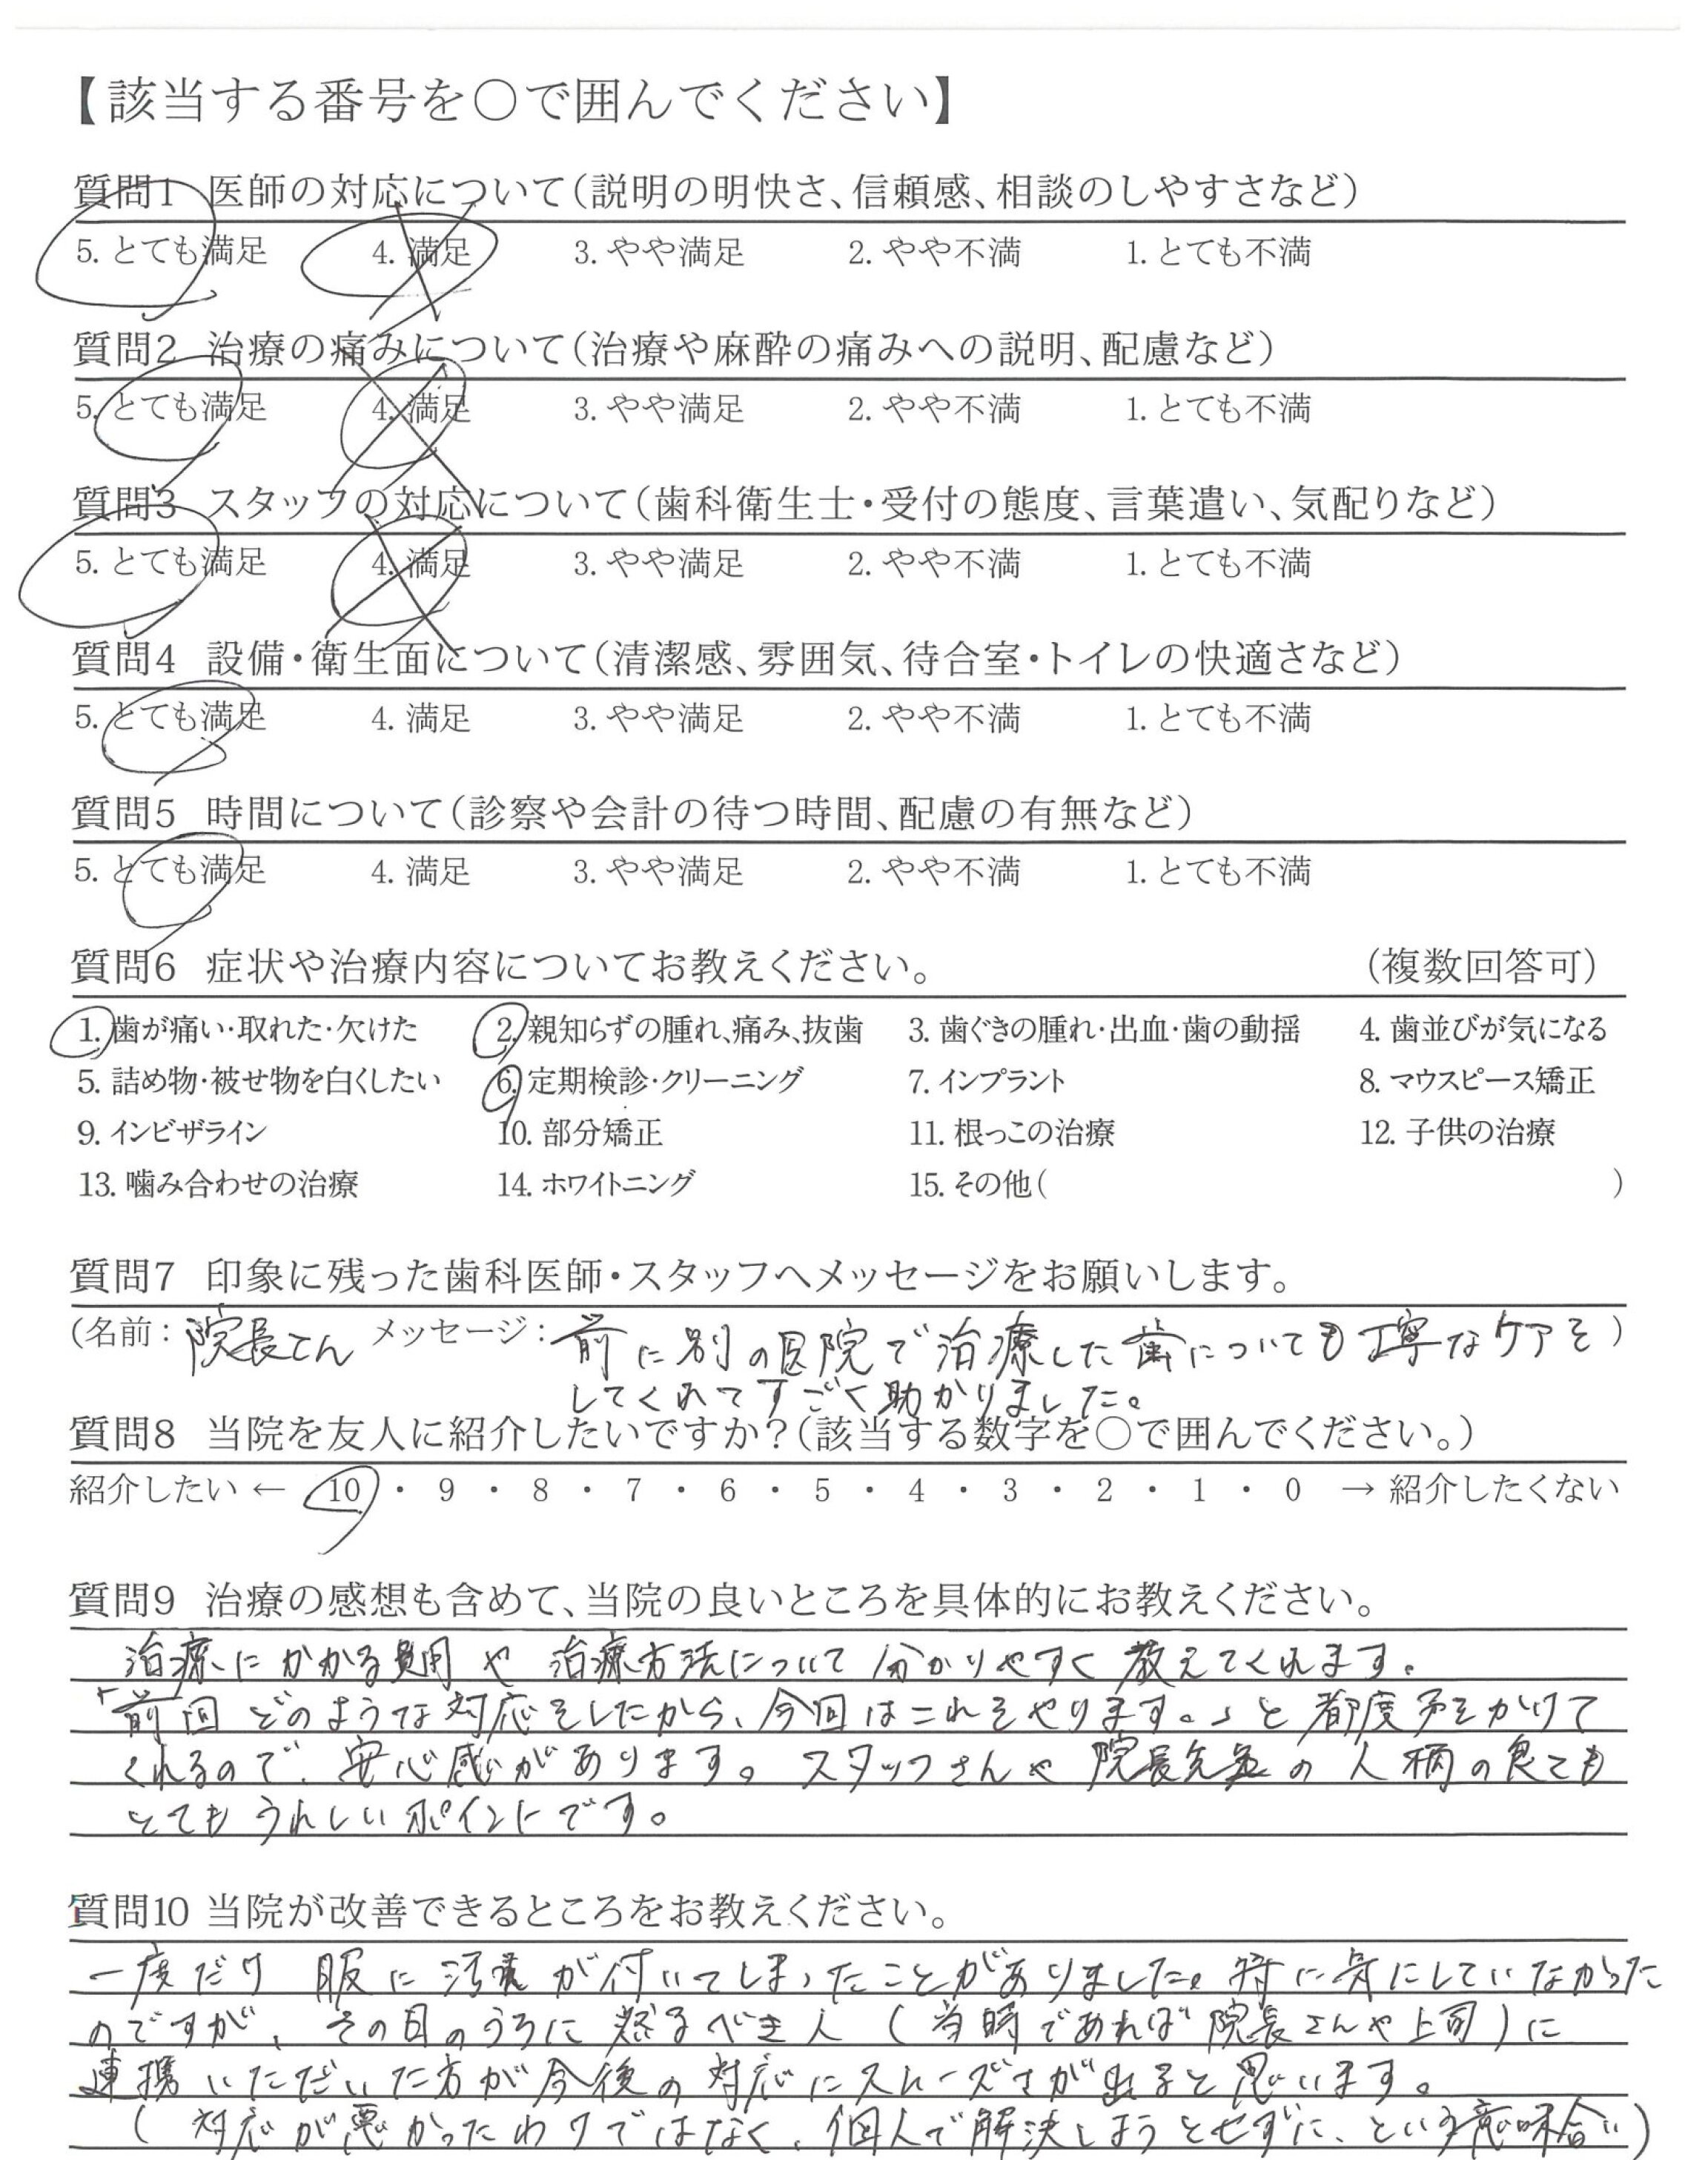 【該当する番号を○で囲んでください】
質問1 医師の対応について(説明の明快さ、信頼感、相談のしやすさなど)
5. とても満足 4. 満足 3. やや満足 2. やや不満 1. とても不満
質問2 治療の痛みについて(治療や麻酔の痛みへの説明、配慮など)
5. とても満足 4. 満足 3. やや満足 2. やや不満 1. とても不満
質問3 スタッフの対応について(歯科衛生士・受付の態度、言葉遣い、気配りなど)
5. とても満足 4. 満足 3. やや満足 2. やや不満 1. とても不満
質問4 設備・衛生面について(清潔感、雰囲気、待合室・トイレの快適さなど)
5. とても満足 4. 満足 3. やや満足 2. やや不満 1. とても不満
質問5 時間について(診察や会計の待つ時間、配慮の有無など)
5. とても満足 4. 満足 3. やや満足 2. やや不満 1. とても不満
質問6 症状や治療内容についてお教えください。 (複数回答可)
1. 歯が痛い・取れた・欠けた 2. 親知らずの腫れ、痛み、抜歯 3. 歯ぐきの腫れ・出血・歯の動揺 4. 歯並びが気になる
5. 詰め物・被せ物を白くしたい 6. 定期検診・クリーニング 7. インプラント 8. マウスピース矯正
9. インビザライン 10. 部分矯正 11. 根っこの治療 12. 子供の治療
13. 噛み合わせの治療 14. ホワイトニング 15. その他( )
質問7 印象に残った歯科医師・スタッフへメッセージをお願いします。
(名前: 院長さん メッセージ: 前に別の医院で治療した歯についても丁寧なケアを)
してくれてすごく助かりました。
質問8 当院を友人に紹介したいですか?(該当する数字を○で囲んでください。)
紹介したい ← 10 ・ 9 ・ 8 ・ 7 ・ 6 ・ 5 ・ 4 ・ 3 ・ 2 ・ 1 ・ 0 → 紹介したくない
質問9 治療の感想も含めて、当院の良いところを具体的にお教えください。
治療にかかる費用や治療方法について分かりやすく教えてくれます。
「前回どのような対応をしたから、今回はこれをやります。」と都度声をかけて
くれるので、安心感があります。スタッフさんや院長先生の人柄の良さも
とてもうれしいポイントです。
質問10 当院が改善できるところをお教えください。
一度だけ服に汚れが付いてしまったことがありました。特に気にしていなかった
のですが、その日のうちに然るべき人(当時であれば院長さんや上司)に
連携いただいた方が今後の対応にスムーズさが出ると思います。
(対応が悪かったわけではなく、個人で解決しようとせずに、という意味合い)